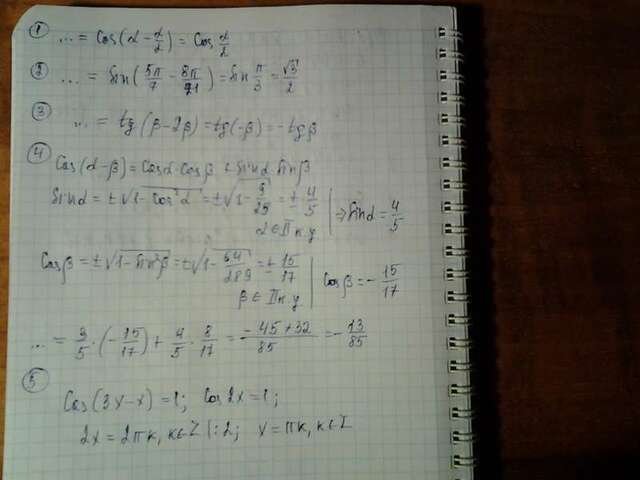 ① ... = Cos(α - α/2) = Cos α/2
② ... = Sin(5π/7 - 8π/21) = Sin π/3 = √3/2
③ ... = tg(β - 2β) = tg(-β) = -tgβ
④ Cos(α - β) = Cosα·Cosβ + Sinα·Sinβ
Sinα = ±√(1 - cos²α) = ±√(1 - 9/25) = ±4/5 | ⇒ Sinα = 4/5
α ∈ II к.у
Cosβ = ±√(1 - Sin²β) = ±√(1 - 64/289) = ±15/17 | Cosβ = -15/17
β ∈ II к.у
... = 3/5·(-15/17) + 4/5·8/17 = (-45+32)/85 = -13/85
⑤
Cos(3x - x) = 1; Cos2x = 1;
2x = 2πк, к∈Z |:2; x = πк, к∈Z